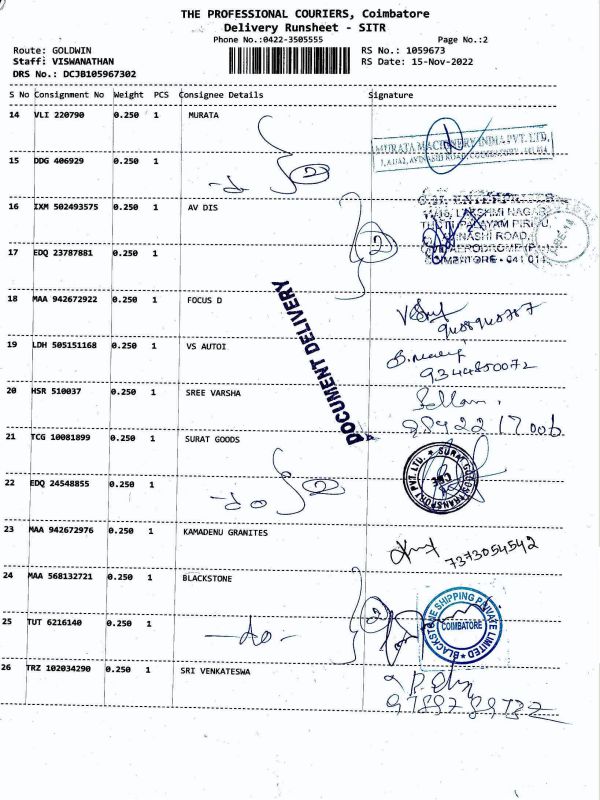 THE PROFESSIONAL COURIERS, Coimbatore
Delivery Runsheet - SITR
Phone No.:0422-3505555 Page No.:2
Route: GOLDWIN RS No.: 1059673
Staff: VISWANATHAN RS Date: 15-Nov-2022
DRS No.: DCJB105967302
S No Consignment No Weight PCS Consignee Details Signature
14 VLI 220790 0.250 1 MURATA
MURATA MACHINERY INDIA PVT. LTD.
15 DDG 406929 0.250 1
-do 2
16 IXM 502493575 0.250 1 AV DIS
LAKSHMI NAGAR
2
ROAD,
17 EDQ 23787881 0.250 1
AERODROME (P
COIMBATORE - 641 014
18 MAA 942672922 0.250 1 FOCUS D
DOCUMENT DELIVERY
19 LDH 505151168 0.250 1 VS AUTOI
9344850072
20 HSR 510037 0.250 1 SREE VARSHA
9842217006
21 TCG 10081899 0.250 1 SURAT GOODS
SURAT GOODS TRANSPORT PVT. LTD.
22 EDQ 24548855 0.250 1
-do 2
23 MAA 942672976 0.250 1 KAMADENU GRANITES
7373054542
24 MAA 568132721 0.250 1 BLACKSTONE
2
BLACKSTONE SHIPPING PRIVATE LIMITED
COIMBATORE
25 TUT 6216140 0.250 1
-do-
26 TRZ 102034290 0.250 1 SRI VENKATESWA